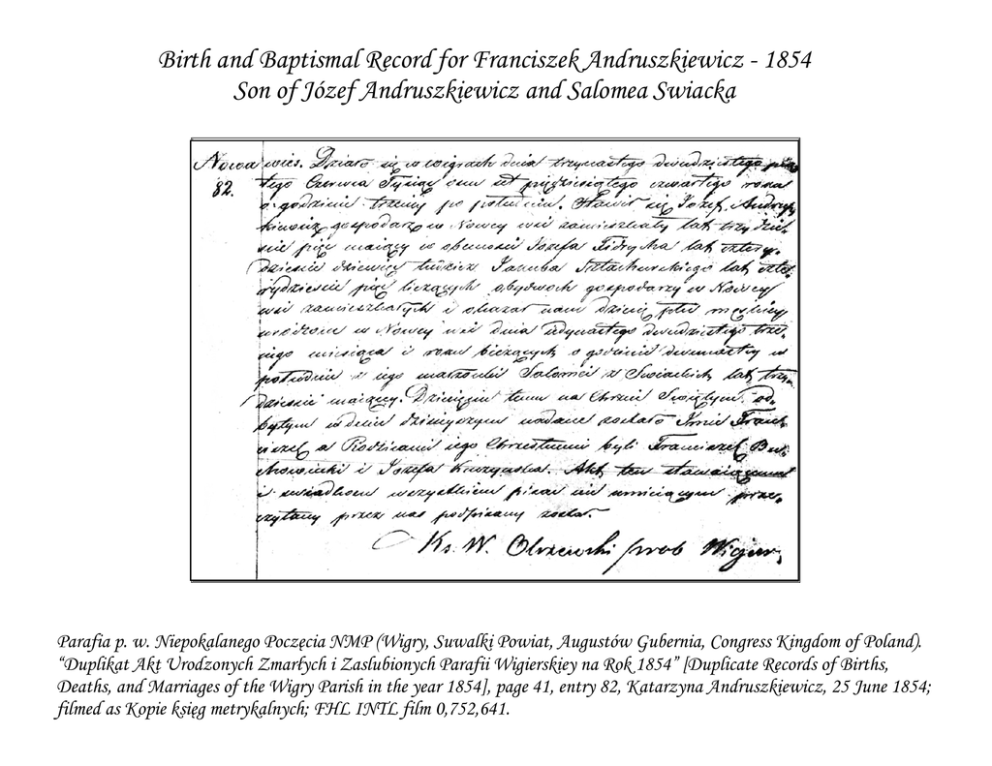 Birth and Baptismal Record for Franciszek Andruszkiewicz - 1854
Son of Józef Andruszkiewicz and Salomea Swiacka
Nowa wies. Działo się w Wigrach dnia trzynastego dwudziestego pią
82. tego Czerwca Tysiąc ośm set pięćdziesiątego czwartego roku
o godzinie trzeciej po południu. Stawił się Jozef Andrusz
kiewicz gospodarz w Nowey wsi zamieszkały lat trzydzie
ści pięć maiący w obecności Jozefa Fidrycha lat cztery.
dzieście dziewięć tudzież Jakuba lat czte
rydzieście pięć liczących obydwoch gospodarzy w Nowey
wsi zamieszkałych i okazał nam dziecię płci męskiey
urodzone w Nowey wsi dnia dwudziestego trze.
ciego miesiąca i roku bieżących o godzinie dwunastey w
południe z iego małżonki Salomei z Swiackich lat trzy.
dzieście maiącey. Dziecięciu temu na Chrzcie Swiętym od.
bytym w dniu dzisieyszym nadane zostało Imie Franci
szek a Rodzicami iego Chrzestnemi byli Franciszek
i Jozefa Akt ten stawaiącemu
i swiadkom wszystkiem pisać nie umieiącym prze.
czytany przez nas podpisany został.
Ks. W. Olszewski prob Wigier.
Parafia p. w. Niepokalanego Poczęcia NMP (Wigry, Suwalki Powiat, Augustów Gubernia, Congress Kingdom of Poland).
“Duplikat Akt Urodzonych Zmarłych i Zaslubionych Parafii Wigierskiey na Rok 1854” [Duplicate Records of Births,
Deaths, and Marriages of the Wigry Parish in the year 1854], page 41, entry 82, Katarzyna Andruszkiewicz, 25 June 1854;
filmed as Kopie księg metrykalnych; FHL INTL film 0,752,641.